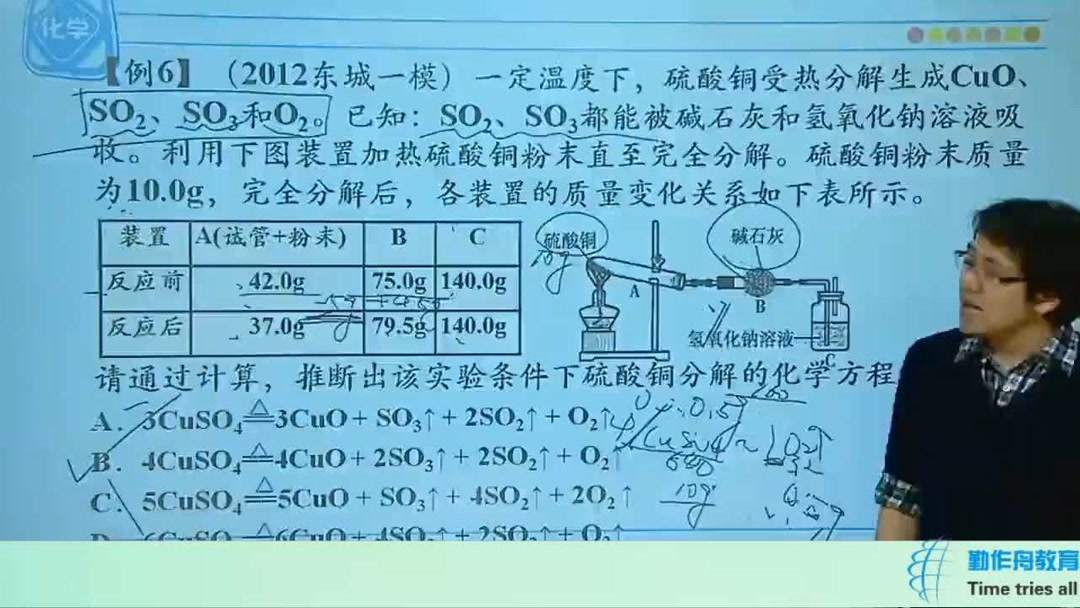 化学
【例6】（2012东城一模）一定温度下，硫酸铜受热分解生成CuO、
SO₂、SO₃和O₂。已知：SO₂、SO₃都能被碱石灰和氢氧化钠溶液吸
收。利用下图装置加热硫酸铜粉末直至完全分解。硫酸铜粉末质量
为10.0g，完全分解后，各装置的质量变化关系如下表所示。
装置 A(试管+粉末) B C
反应前 42.0g 75.0g 140.0g
反应后 37.0g 79.5g 140.0g
硫酸铜
10g
碱石灰
A
B
氢氧化钠溶液
C
请通过计算，推断出该实验条件下硫酸铜分解的化学方程
A．3CuSO₄≜3CuO + SO₃↑ + 2SO₂↑ + O₂↑
B．4CuSO₄≜4CuO + 2SO₃↑ + 2SO₂↑ + O₂↑
C．5CuSO₄≜5CuO + SO₃↑ + 4SO₂↑ + 2O₂↑
D．6CuSO₄≜6CuO + 4SO₃↑ + 2SO₂↑ + O₂↑
10g
勤作舟教育
Time tries all